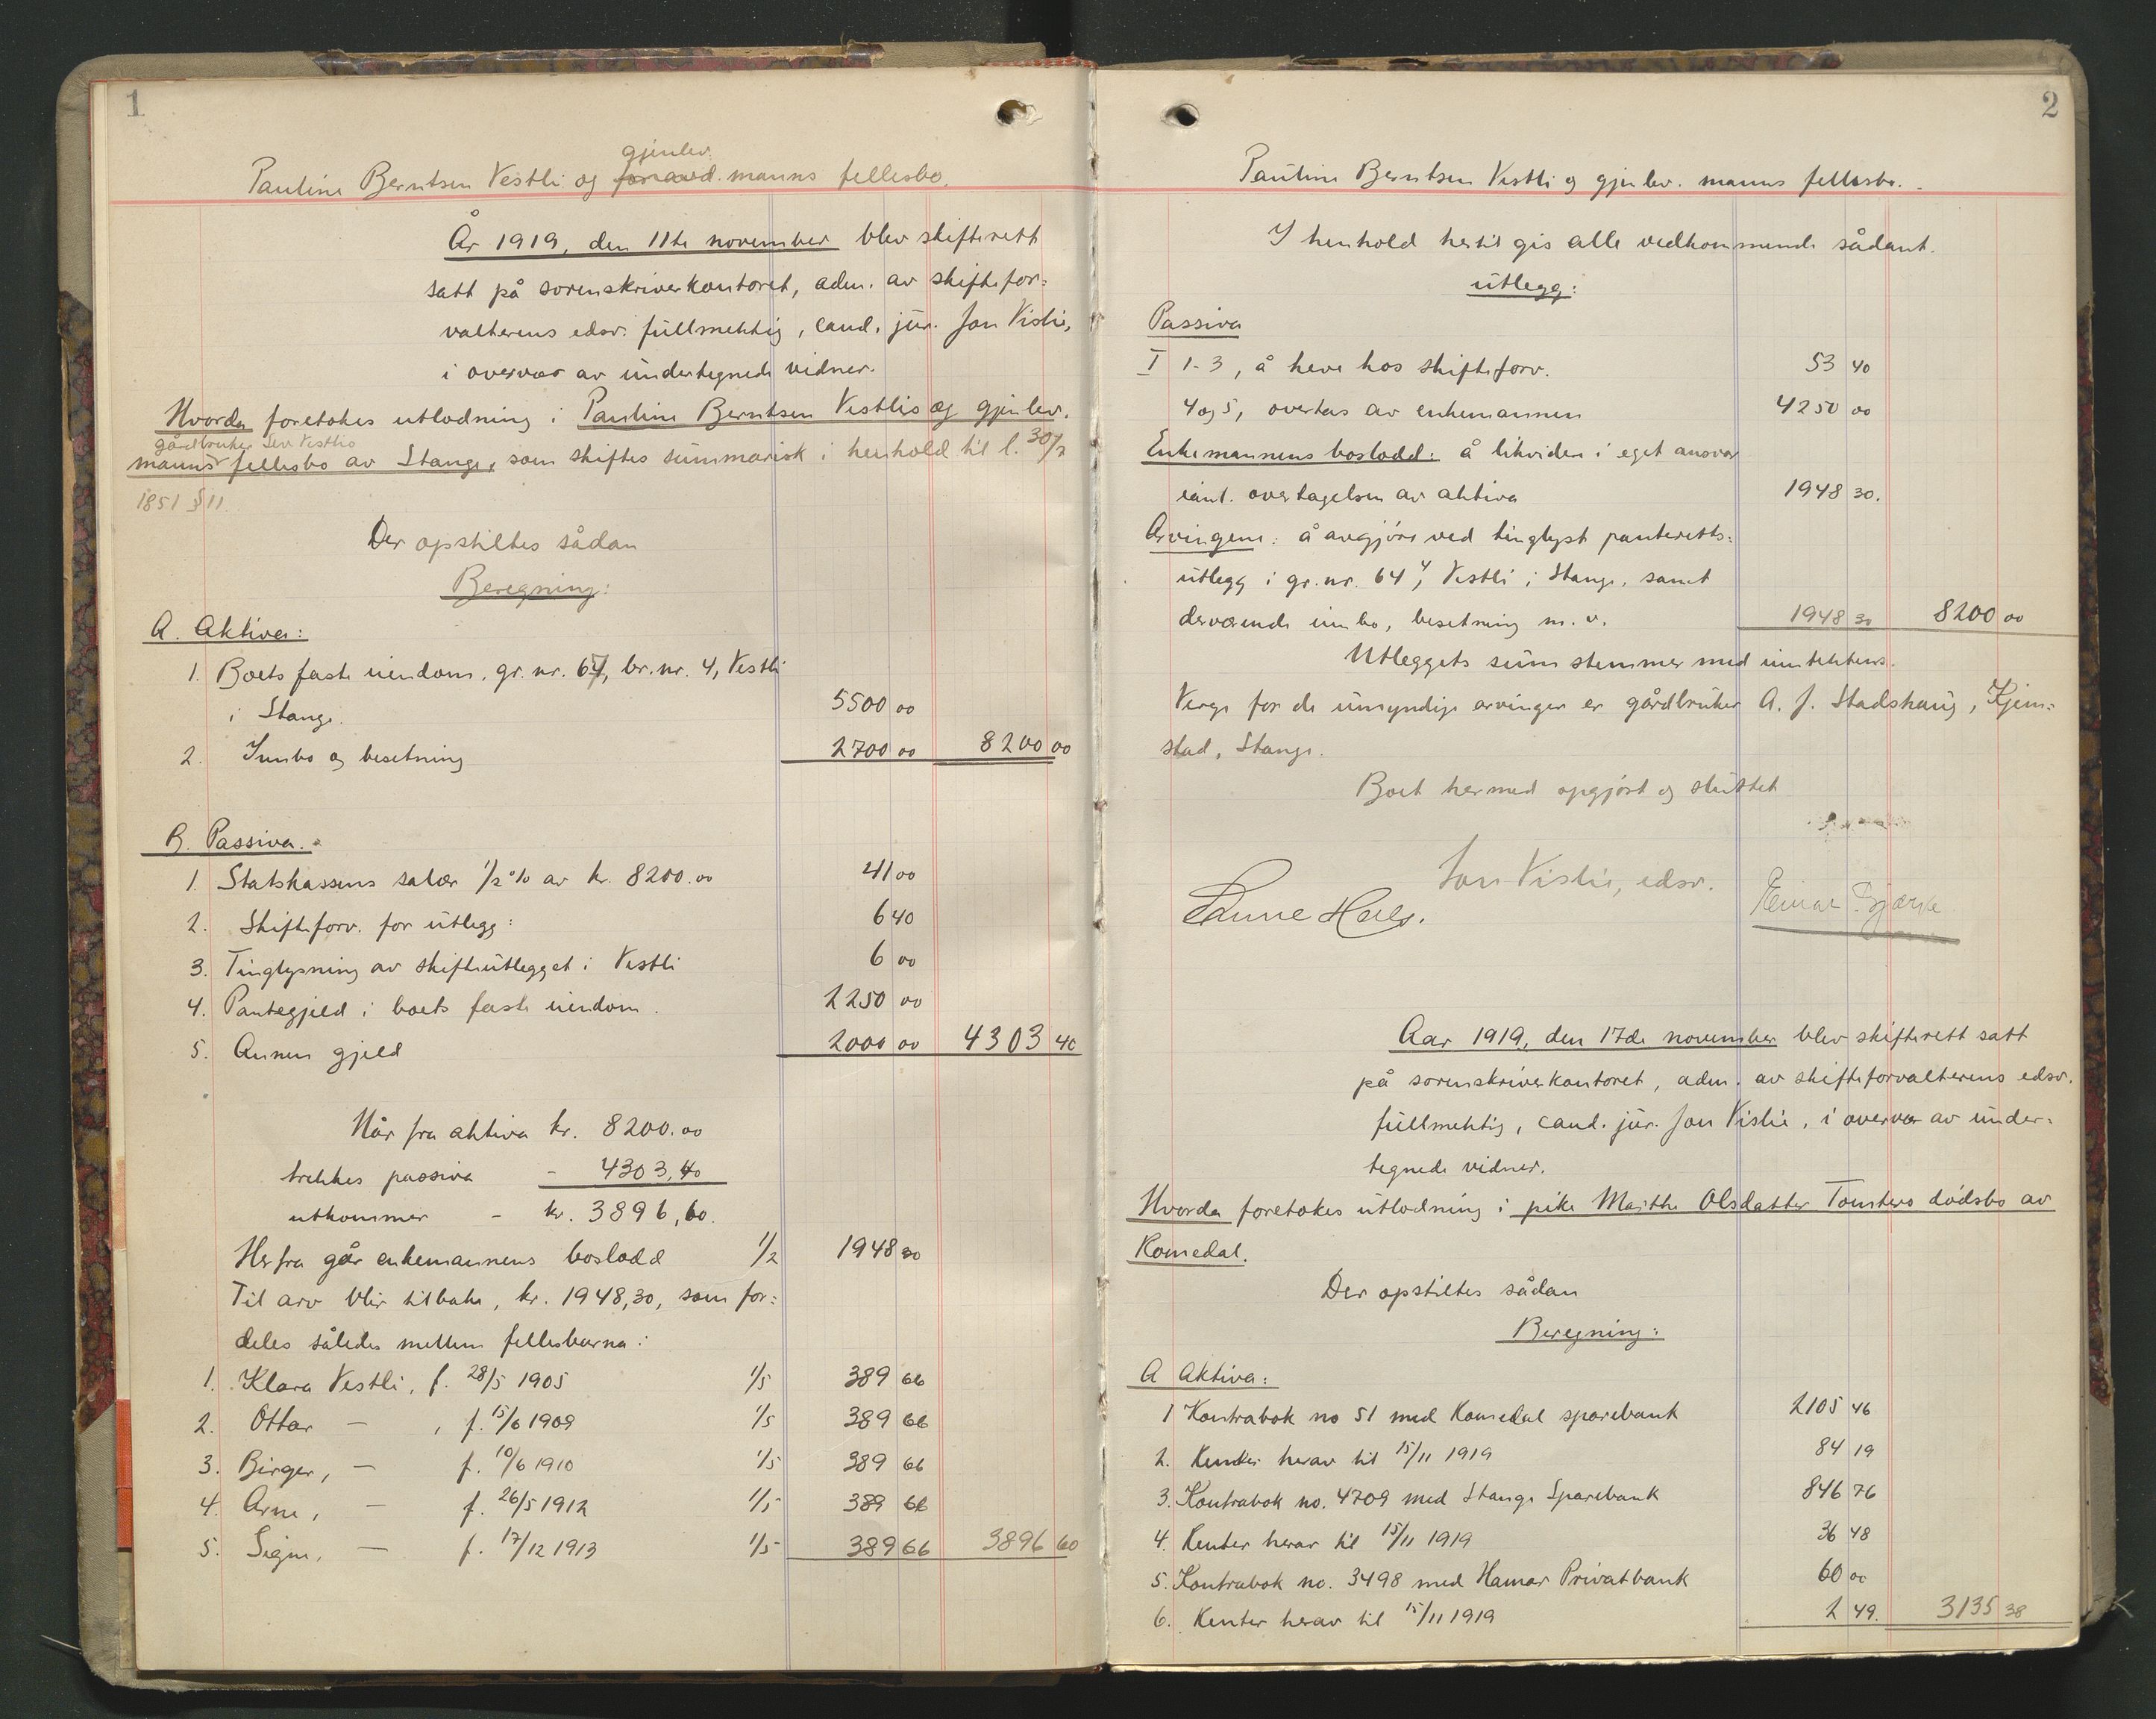 1
gjenlev.
Pauline Berntsen Vestli og manns fellesbo.
År 1919, den 11te november blev skifterett
satt på sorenskriverkontoret, adm. av skiftefor-
valterens edsv. fullmektig, cand. jur. Jon Vislie,
i overvær av undertegnede vidner.
Hvorda foretokes utlodning i Pauline Berntsen Vestlis og gjenlev.
gårdbruker Vestlis
manns fellesbo av Stange, som skiftes summarisk i henhold til l. 30/7
1851 § 11.
Der opstiltes sådan
Beregning:
A. Aktiva:
1. Boets faste eiendom, gr. nr. 64, br. nr. 4, Vestli
i Stange. 5500 00
2. Innbo og besetning 2700 00 8200 00
B. Passiva.
1. Statskassens salær 1/2 % av kr. 8200.00 41 00
2. Skifteforv. for utlegg: 6 40
3. Tinglysning av skifteutlegget i Vestli 6 00
4. Pantegjeld i boets faste eiendom. 2250 00
5. Annen gjeld 2000 00 4303 40
Når fra aktiva kr. 8200.00
trekkes passiva - 4303,40
utkommer - kr. 3896,60.
Herfra går enkemannens boslodd 1/2 1948 30
Til arv blir tilbake, kr. 1948,30, som for-
deles således mellem fellesbarna:
1. Klara Vestli, f. 28/5 1905 1/5 389 66
2. Ottar — , f. 15/6 1909 1/5 389 66
3. Birger, — f. 10/6 1910 1/5 389 66
4. Arne, — f. 26/5 1912 1/5 389 66
5. Signe, — f. 17/12 1913 1/5 389 66 3896 60
2
Pauline Berntsen Vestli og gjenlev. manns fellesbo.
I henhold hertil gis alle vedkommende sådant
utlegg:
Passiva
I 1-3, å heve hos skifteforv. 53 40
4 og 5, overtas av enkemannen 4250 00
Enkemannens boslodd: å likvidere i eget ansvar
ianl. overtagelsen av aktiva 1948 30.
Arvingene: å avgjøre ved tinglyst panteretts-
utlegg i gr. nr. 64, 4, Vestli i Stange, samt
derværende innbo, besetning m. v. 1948 30 8200 00
Utleggets sum stemmer med inntektens.
Verge for de umyndige arvinger er gårdbruker A. J. Stadshaug, Kjem-
stad, Stange.
Boet hermed opgjort og sluttet
Jon Vislie, edsv.
Einar Bjerke
Aar 1919, den 17de november blev skifterett satt
på sorenskriverkontoret, adm. av skifteforvalterens edsv.
fullmektig, cand. jur. Jon Vislie, i overvær av under-
tegnede vidner.
Hvorda foretokes utlodning i pike Marthe Olsdatter dødsbo av
Romedal.
Der opstiltes sådan
Beregning:
A Aktiva:
1 Kontrabok no 51 med Romedal sparebank 2105 46
2. Renter herav til 15/11 1919 84 19
3. Kontrabok no. 4709 med Stange Sparebank 846 76
4. Renter herav til 15/11 1919 36 48
5. Kontrabok no. 3498 med Hamar Privatbank 60 00
6. Renter herav til 15/11 1919 2 49. 3135 38